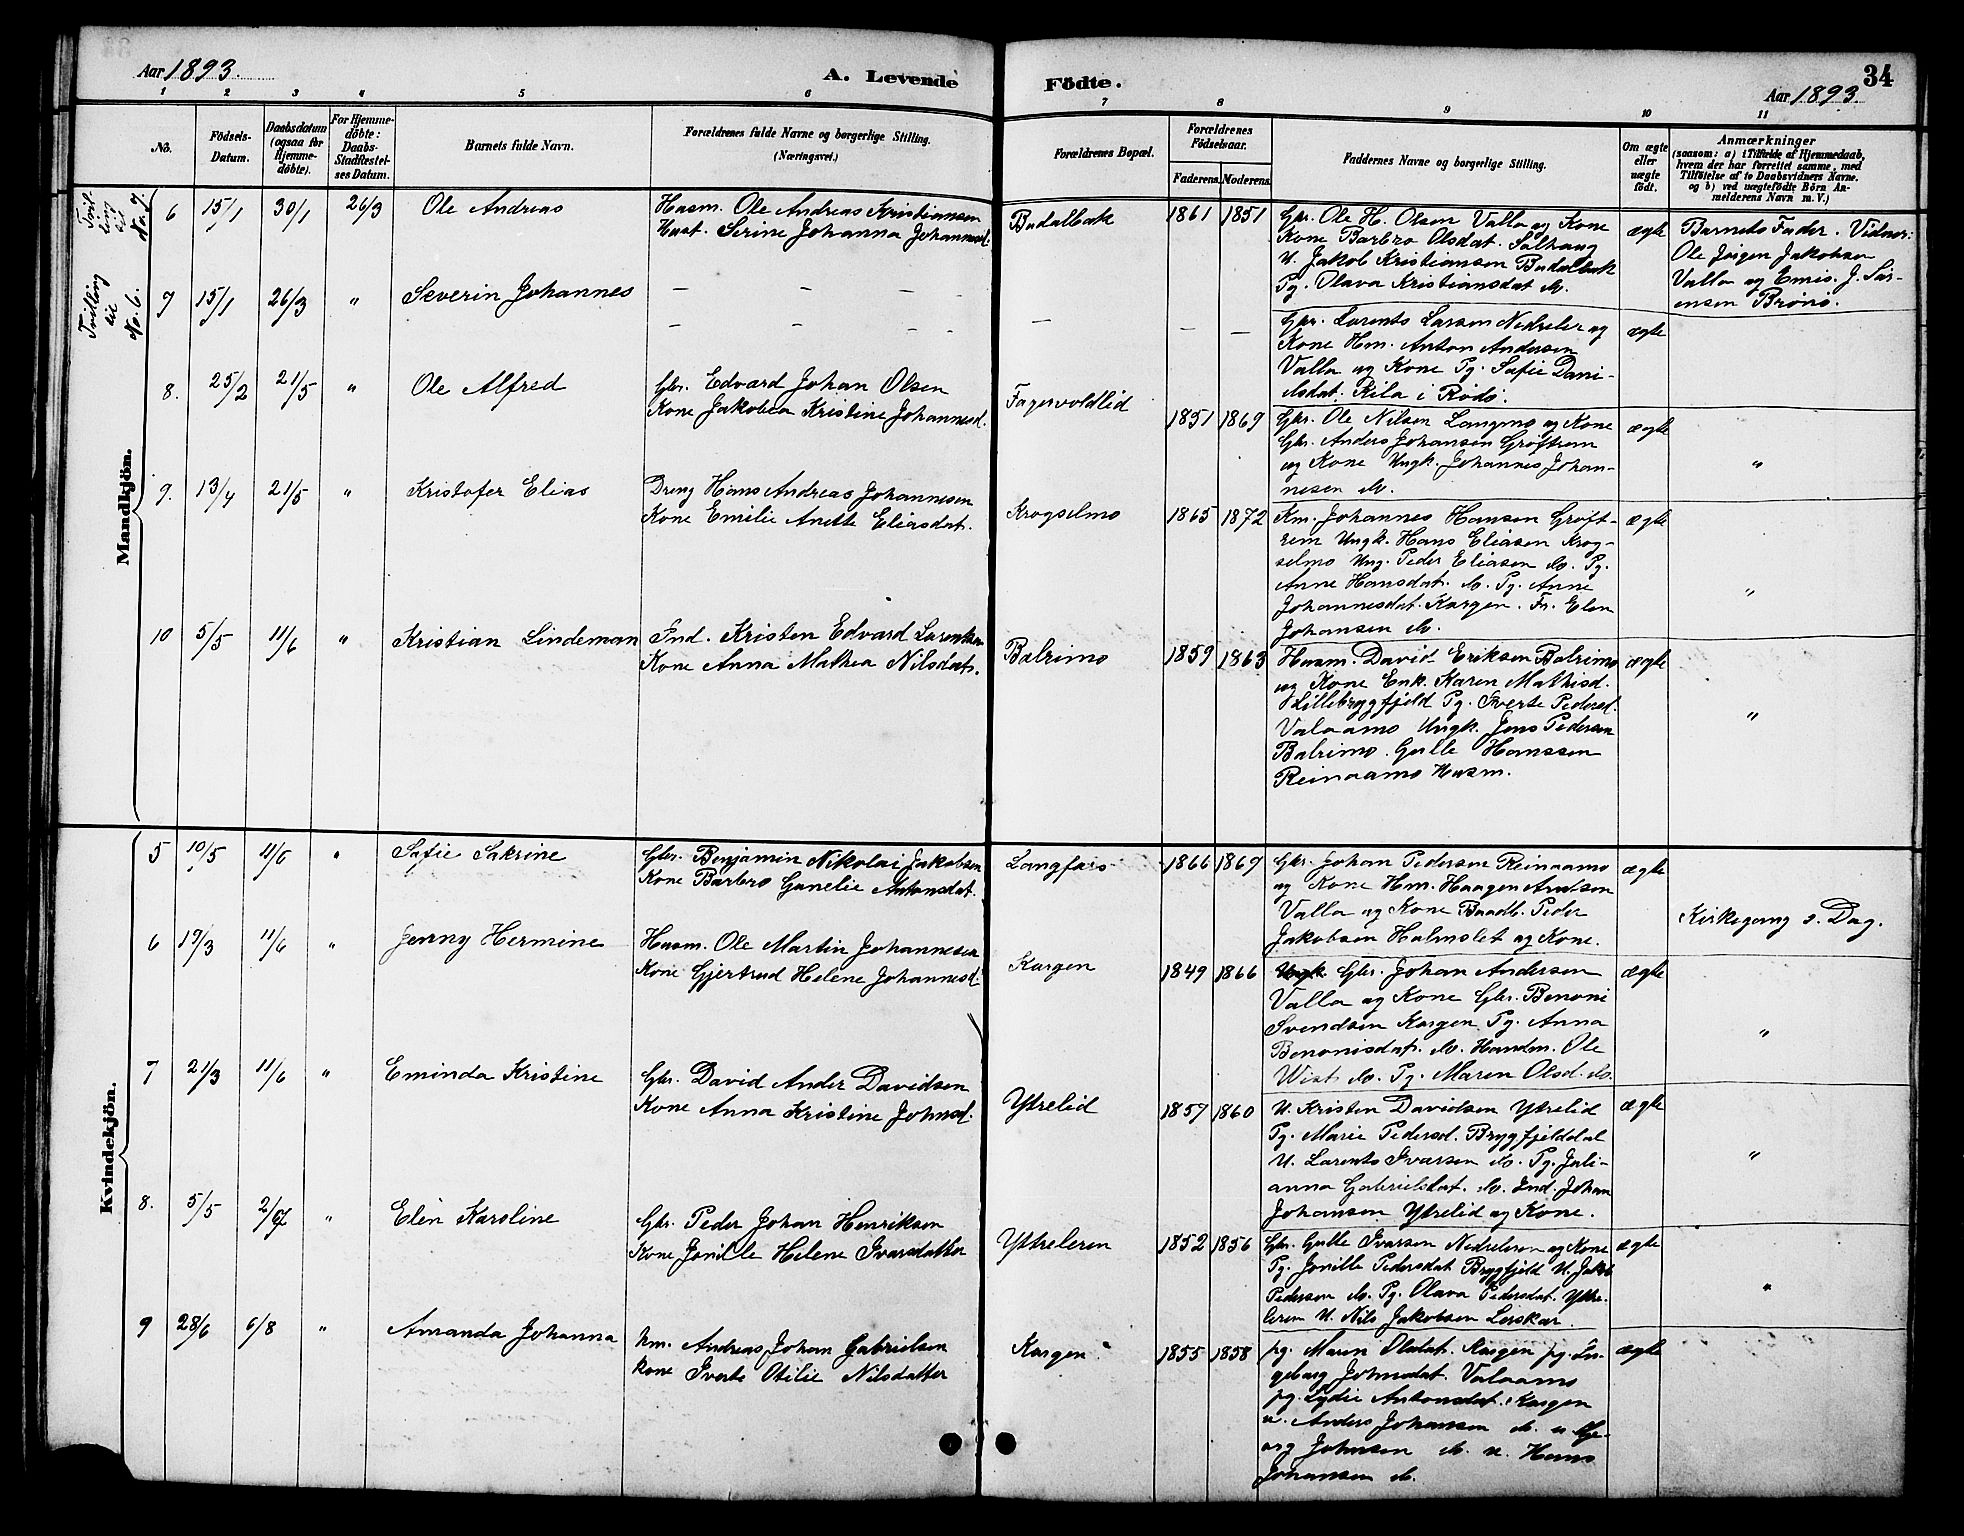 Aar 1893.
A. Levende
Födte.
34
Aar 1893.
1 2 3 4 5 6 7 8 9 10 11
No.
Födsels-
Datum.
Daabsdatum
(ogsaa for
Hjemme-
døbte).
For Hjemme-
döbte:
Daabs-
Stadfæstel-
ses Datum.
Barnets fulde Navn.
Forældrenes fulde Navne og borgerlige Stilling.
(Næringsvei.)
Forældrenes Bopæl.
Forældrenes
Födselsaar.
Faderens. Moderens.
Faddernes Navne og borgerlige Stilling.
Om ægte
eller
uægte
födt.
Anmærkninger
(saasom: a) i Tilfælde af Hjemmedaab,
hvem der har forrettet samme, med
Tilföielse af to Daabsvidners Navne.
og b) ved uægtefödte Börn An-
melderens Navn m. V.)
Mandkjön.
Tvil-
ling
til
No. 7.
6 15/1 30/1 26/3 Ole Andreas
Husm. Ole Andreas Kristiansen
Hust. Serine Johanna Johannesd.
Budalbak 1861 1851
Gbr. Ole H. Olsen Valla og Kone
Kone Barbro Olsdat. Solhaug
U. Jakob Kristiansen Budalbak
Pg. Olava Kristiansdat do.
ægte
Barnets Fader. Vidner:
Ole Jörgen Jakobsen
Valla og Emis. J. Sör-
ensen Brönö.
Tvilling
til
No. 6.
7 15/1 26/3 " Severin Johannes
— — — —
— — — —
— — —
Gbr. Lorents Larsen Nedreler og
Kone Hm. Anton Andersen
Valla og Kone Pg. Sofie Dani-
elsdat. Kila i Rödö.
ægte
8. 25/2 21/5 " Ole Alfred
Gbr. Edvard Johan Olsen
Kone Jakobea Kristine Johannesd.
Fagervoldlid 1851 1869
Gbr. Ole Nilsen Langmo og Kone
Gbr. Anders Johansen Gröftrem
og Kone Ungk. Johannes Johan-
nesen do.
ægte "
9. 13/4 21/5 " Kristofer Elias
Dreng Hans Andreas Johannesen
Kone Emilie Anette Eliasdat.
Krogselmo 1865 1872
Km. Johannes Hansen Gröft-
rem Ungk. Hans Eliasen Krog-
selmo Ung. Peder Eliasen do. Pg.
Anne Hansdat. do. Pg. Anne
Johannesdat. Kargen. Fr. Elen
Johansen do.
ægte "
10 5/5 11/6 " Kristian Lindeman
Ind. Kristen Edvard Lorentsen
Kone Anna Mathea Nilsdat.
Balrimo 1859 1863
Husm. David Eriksen Balrimo
og Kone Enk. Karen Mathisd.
Lillebryggfjeld Pg. Sverte Pedersd.
Valaamo Ungk. Jens Pedersen
Balrimo. Gulle Hanssen
Reinaamo Husm.
ægte "
Kvindekjön.
5 10/5 11/6 " Sofie Sakrine
Gbr. Benjamin Nikolai Jakobsen
Kone Barbro Gunelie Antonsdat.
Langfors 1866 1869
Gbr. Johan Pedersen Reinaamo
og Kone Hm. Haagen Arntsen
Valla og Kone Baadb. Peder
Jakobsen Holmslet og Kone.
ægte
Kirkegang s. Dag.
6 19/3 11/6 " Jenny Hermine
Husm. Ole Martin Johannesen
Kone Gjertrud Helene Johannesd.
Kargen 1849 1866
Ungk. Gbr. Johan Andersen
Valla og Kone Gbr. Benoni
Svendsen Kargen Pg. Anna
Benonisdat. do. Handm. Ole
Wist do. Pg. Maren Olsd. do.
ægte "
7 21/3 11/6 " Eminda Kristine
Gbr. David Ander Davidsen
Kone Anna Kristine Johnsd.
Ytrelid 1857 1860
U. Kristen Davidsen Ytrelid
Pg. Marie Pedersd. Bryggfjelddal
U. Lorents Ivarsen do. Pg. Juli-
anna Gabrielsdat. do. Ind. Johan
Johansen Ytrelid og Kone.
ægte "
8. 5/5 2/7 " Elen Karoline
Gbr. Peder Johan Henriksen
Kone Jonille Helene Ivarsdatter
Yttreleren 1852 1856
Gbr. Gulle Ivarsen Nedreleren og Kone
Pg. Jonille Pedersdat Bryggfjeld U. Jakob
Pedersen do. Pg. Olava Pedersdat. Yttre-
leren U. Nils Jakobsen Lerskar.
ægte "
9 28/6 6/8 " Amanda Johanna
hm. Andreas Johan Gabrielsen
kone Sverte Otilie Nilsdatter
Kargen 1855 1858
pg. Maren Olsdat. Kargen pg. In-
geborg Johnsdat. Valaamo
pg. Lydie Antonsdat. Kargen
u. Anders Johansen do. u.
Johnsen do. u. Hans
Johansen do.
ægte